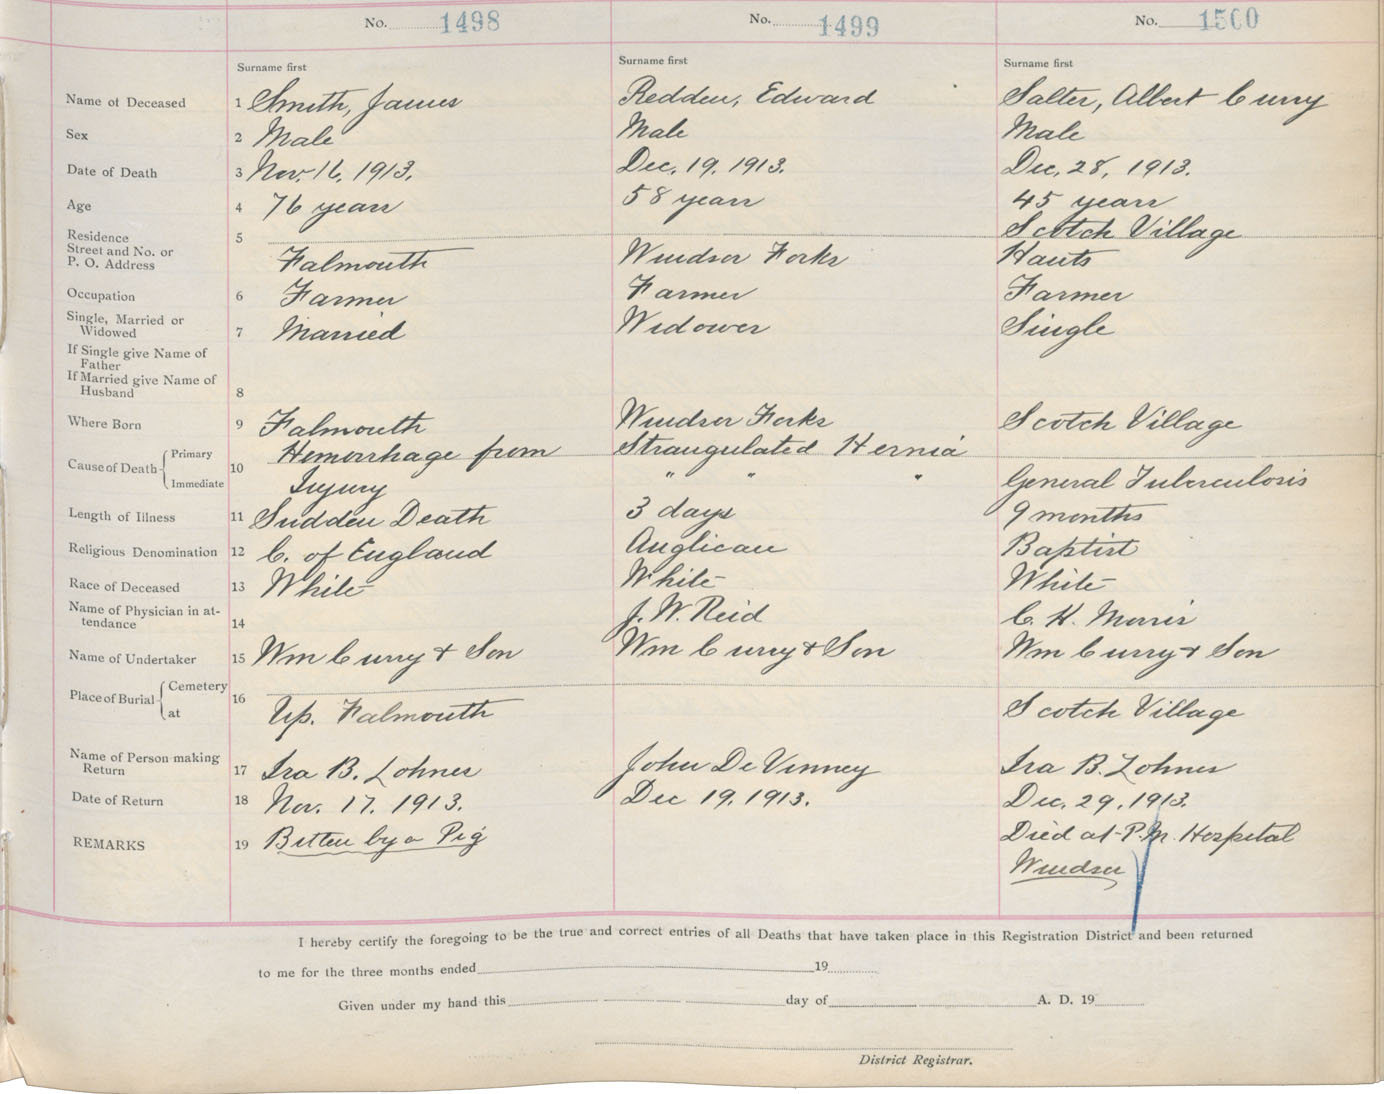 No. 1498 No. 1499 No. 1500
Surname first Surname first Surname first
Name of Deceased 1 Smith, James Redden, Edward Salter, Albert Curry
Sex 2 Male Male Male
Date of Death 3 Nov. 16, 1913. Dec. 19, 1913. Dec. 28, 1913.
Age 4 76 years 58 years 45 years
Residence 5 Scotch Village
Street and No. or
P. O. Address Falmouth Windsor Forks Hants
Occupation 6 Farmer Farmer Farmer
Single, Married or
Widowed 7 Married Widower Single
If Single give Name of
Father
If Married give Name of
Husband 8
Where Born 9 Falmouth Windsor Forks Scotch Village
Cause of Death 10 Primary Hemorrhage from Strangulated Hernia
Immediate Injury " " " General Tuberculosis
Length of Illness 11 Sudden Death 3 days 9 months
Religious Denomination 12 C. of England Anglican Baptist
Race of Deceased 13 White White White
Name of Physician in at-
tendance 14 J. W. Reid C. H. Morris
Name of Undertaker 15 Wm Curry & Son Wm Curry & Son Wm Curry & Son
Place of Burial 16 Cemetery
at Up. Falmouth Scotch Village
Name of Person making
Return 17 Ira B. Lohnes John DeVinney Ira B. Lohnes
Date of Return 18 Nov. 17. 1913. Dec 19. 1913. Dec. 29, 1913.
REMARKS 19 Bitten by a Pig Died at P.M. Hospital
Windsor
I hereby certify the foregoing to be the true and correct entries of all Deaths that have taken place in this Registration District and been returned
to me for the three months ended 19
Given under my hand this day of A. D. 19
District Registrar.